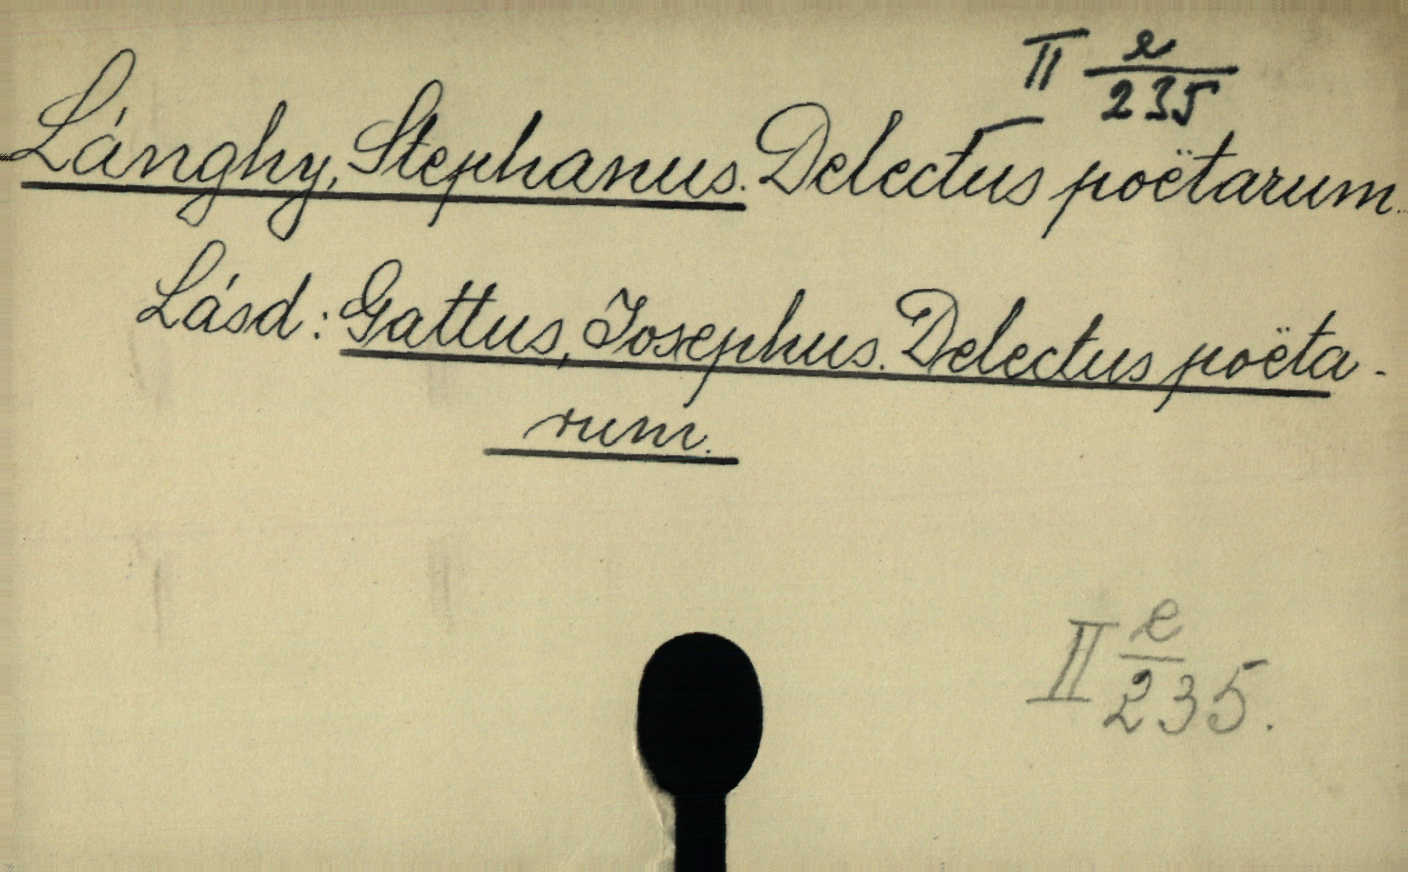 II e/235
Lánghy, Stephanus. Delectus poëtarum.
Lásd: Gattus, Josephus. Delectus poëta-
rum.
II e/235.